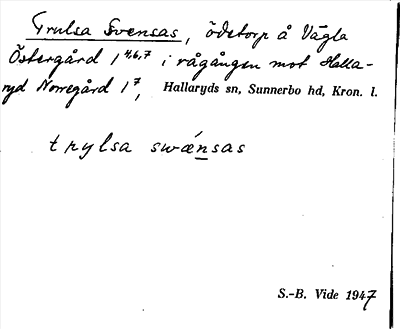 Trulsa Svensas, ödetorp å Vägla
Östergård 1⁴,⁶,⁷ i rågången mot Halla-
ryd Norregård 1⁷, Hallaryds sn, Sunnerbo hd, Kron. l.
trylsa swǽnsas
S.-B. Vide 1947